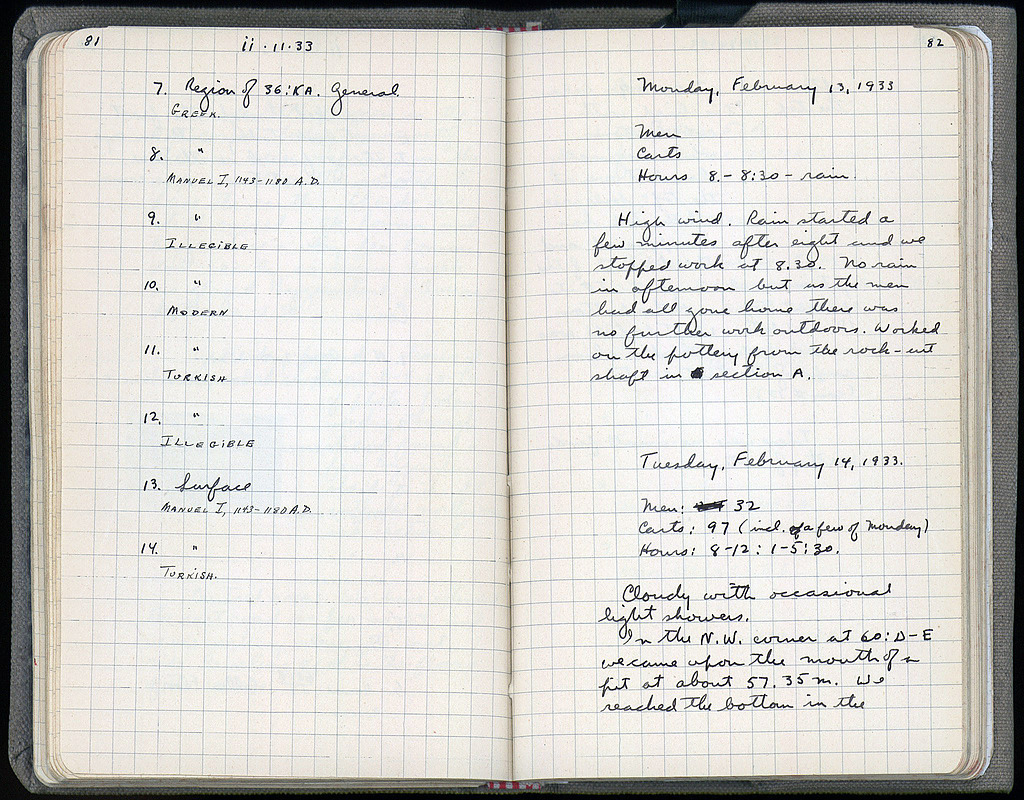 81
ii · 11 · 33
7. Region of 36:KA. General.
GREEK.
8. "
MANUEL I, 1143-1180 A.D.
9. "
ILLEGIBLE
10. "
MODERN
11. "
TURKISH
12. "
ILLEGIBLE
13. Surface
MANUEL I, 1143-1180 A.D.
14. "
TURKISH.
82
Monday, February 13, 1933
Men
Carts
Hours 8.- 8:30 - rain.
High wind. Rain started a
few minutes after eight and we
stopped work at 8.30. No rain
in afternoon but as the men
had all gone home there was
no further work outdoors. Worked
on the pottery from the rock-cut
shaft in section A.
Tuesday, February 14, 1933.
Men: 32
Carts: 97 (incl. a few of Monday)
Hours: 8-12 : 1-5:30.
Cloudy with occasional
light showers.
In the N.W. corner at 60:D-E
we came upon the mouth of a
pit at about 57.35m. We
reached the bottom in the